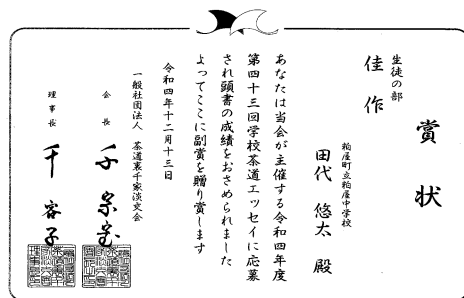 賞状
生徒の部
佳作
粕屋町立粕屋中学校
田代 悠太 殿
あなたは当会が主催する令和四年度
第四十三回学校茶道エッセイに応募
され頭書の成績をおさめられました
よってここに副賞を贈り賞します
令和四年十二月十三日
一般社団法人 茶道裏千家淡交会
会長 千 宗室
理事長 千 容子